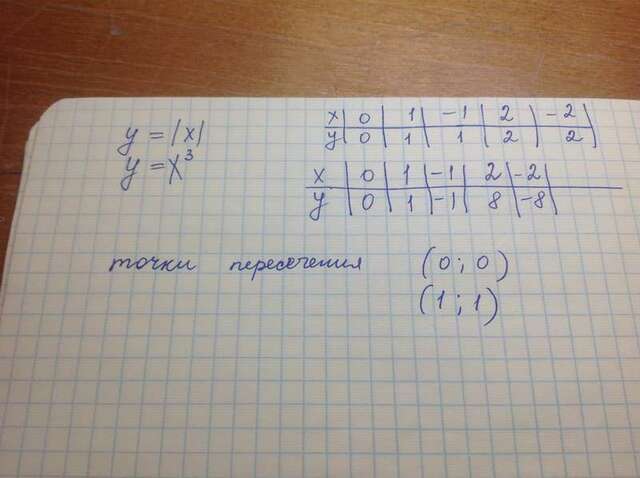 y = |x|
y = x³
x | 0 | 1 | -1 | 2 | -2
y | 0 | 1 | 1 | 2 | 2
x | 0 | 1 | -1 | 2 | -2
y | 0 | 1 | -1 | 8 | -8
точки пересечения (0; 0)
(1; 1)